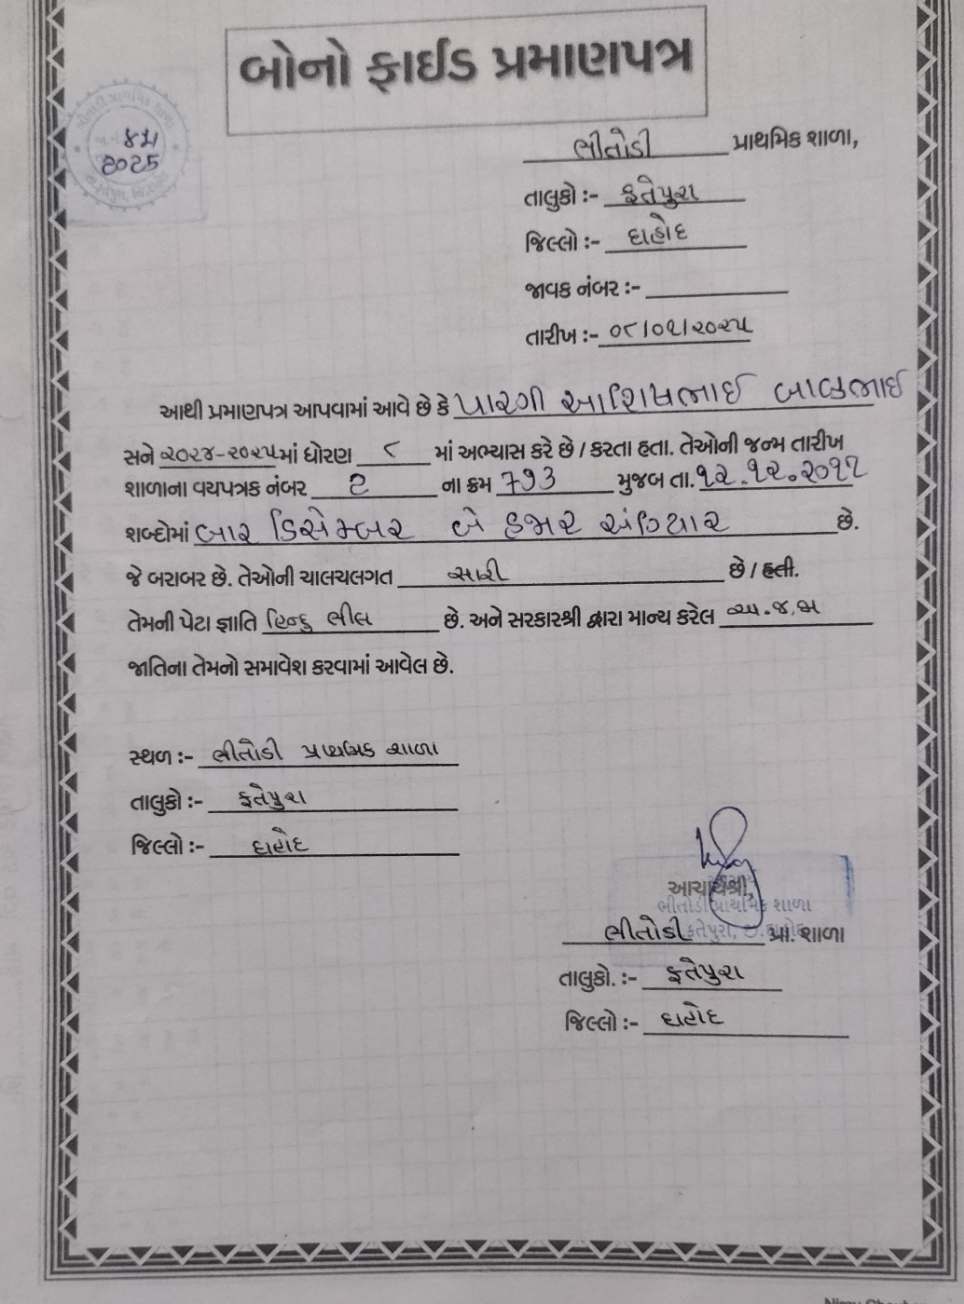 બોનો ફાઈડ પ્રમાણપત્ર
2025
ભીતોડી પ્રાથમિક શાળા,
તાલુકો :- ફતેપુરા
જિલ્લો :- દાહોદ
જાવક નંબર :-
તારીખ :- ૦૮/૦૨/૨૦૨૫
આથી પ્રમાણપત્ર આપવામાં આવે છે કે પારગી આશિષભાઈ બાબુભાઈ
સને ૨૦૨૪-૨૦૨૫માં ધોરણ ૮ માં અભ્યાસ કરે છે / કરતા હતા. તેઓની જન્મ તારીખ
શાળાના વયપત્રક નંબર ૨ ના ક્રમ ૭૧૩ મુજબ તા. ૧૨.૧૨.૨૦૧૧
શબ્દોમાં બાર ડિસેમ્બર બે હજાર અગિયાર છે.
જે બરાબર છે. તેઓની ચાલચલગત સારી છે / હતી.
તેમની પેટા જ્ઞાતિ હિન્દુ ભીલ છે. અને સરકારશ્રી દ્વારા માન્ય કરેલ અ.જ.જા
જાતિના તેમનો સમાવેશ કરવામાં આવેલ છે.
સ્થળ :- ભીતોડી પ્રાથમિક શાળા
તાલુકો :- ફતેપુરા
જિલ્લો :- દાહોદ
આચાર્યશ્રી,
ભીતોડી પ્રાથમિક શાળા
ભીતોડી પ્રા. શાળા
તાલુકો. :- ફતેપુરા
જિલ્લો :- દાહોદ